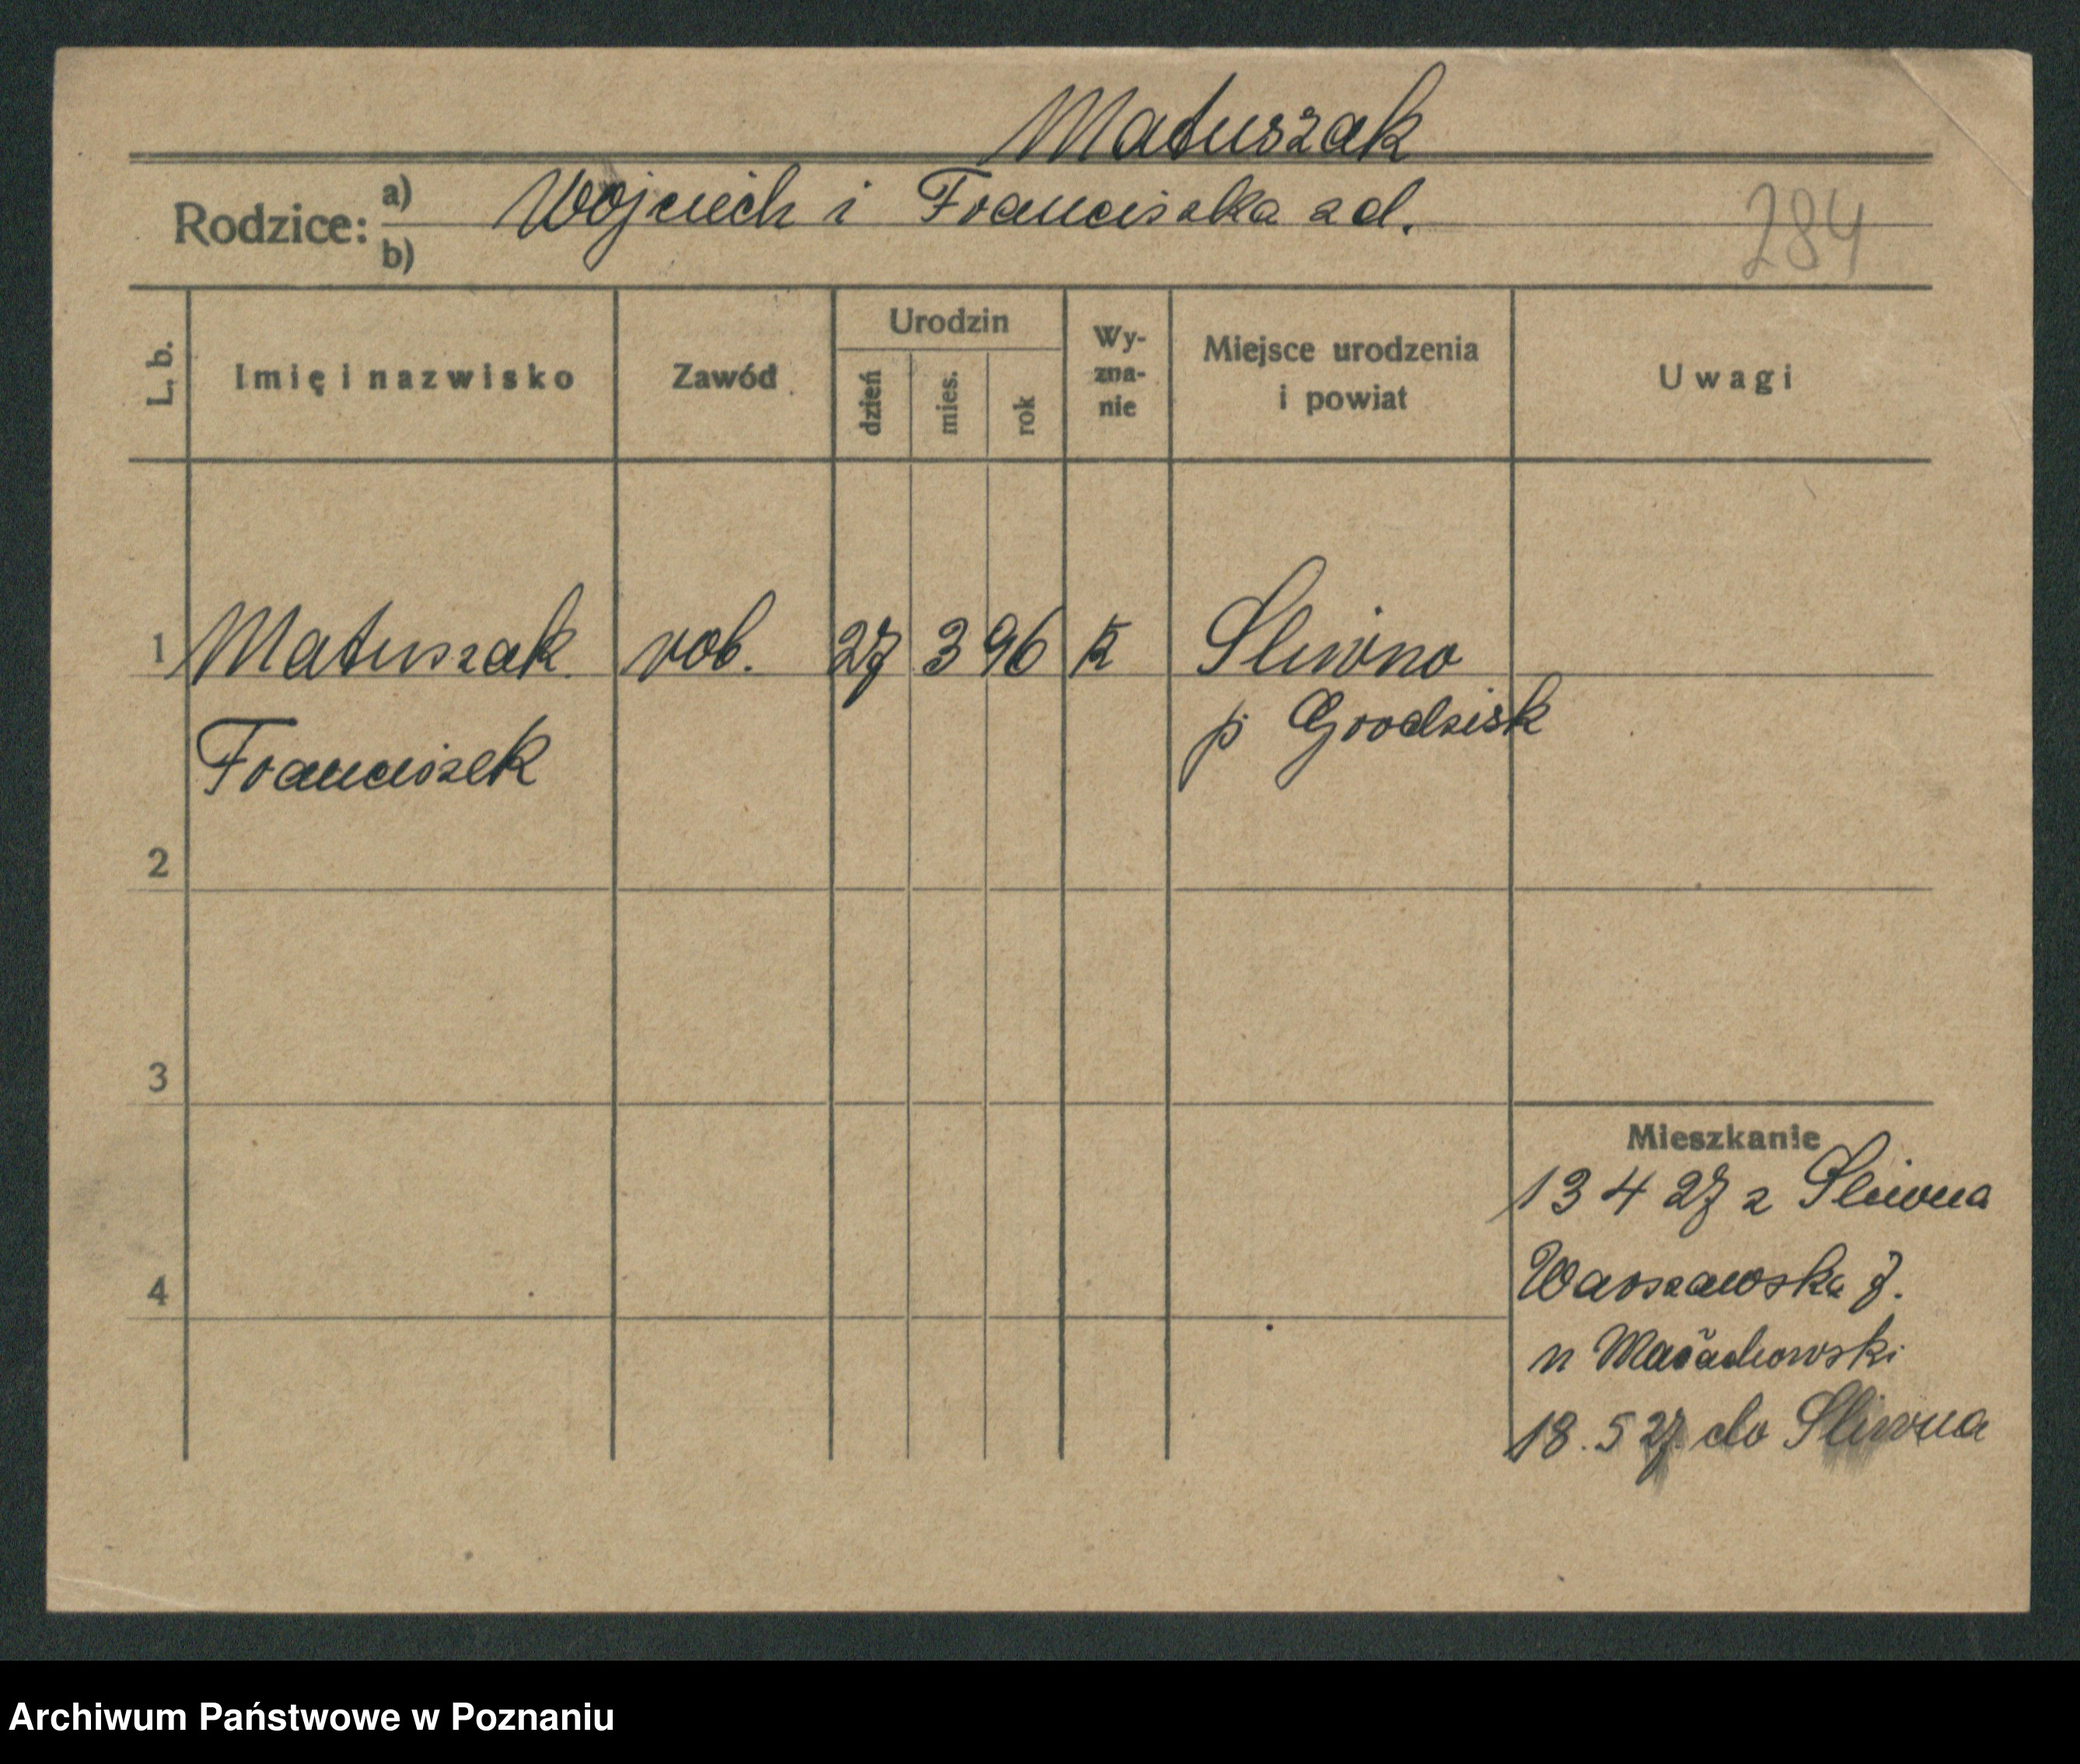 Matuszak
Rodzice: a) Wojciech i Franciszka zd.
b)
284
L. b.
Imię i nazwisko
Zawód
Urodzin
dzień
mies.
rok
Wy-
zna-
nie
Miejsce urodzenia
i powiat
Uwagi
1 Matuszak rob. 27 3 96 k Sliwno
Franciszek p Grodzisk
2
3
4
Mieszkanie
13 4 27 z Sliwna
Warszawska 7.
18. 5 27. do Sliwna
Archiwum Państwowe w Poznaniu